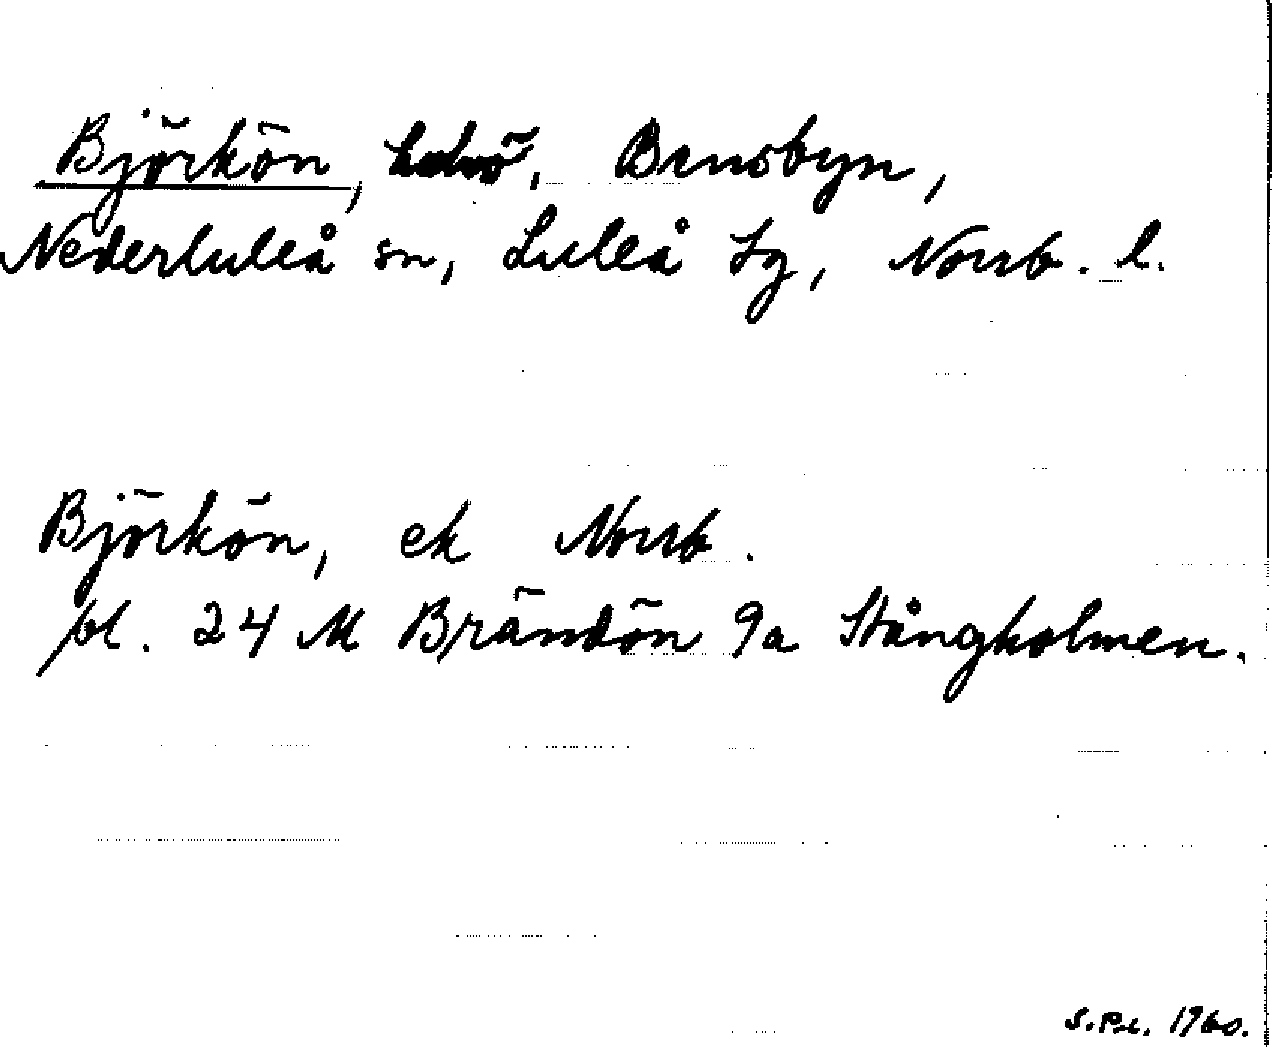 Björkön, Bensbyn,
Nederluleå sn, Luleå tg, Norrb. l.
Björkön, ek Norrb.
bl. 24 M Brändön 9a Stångholmen.
1960.